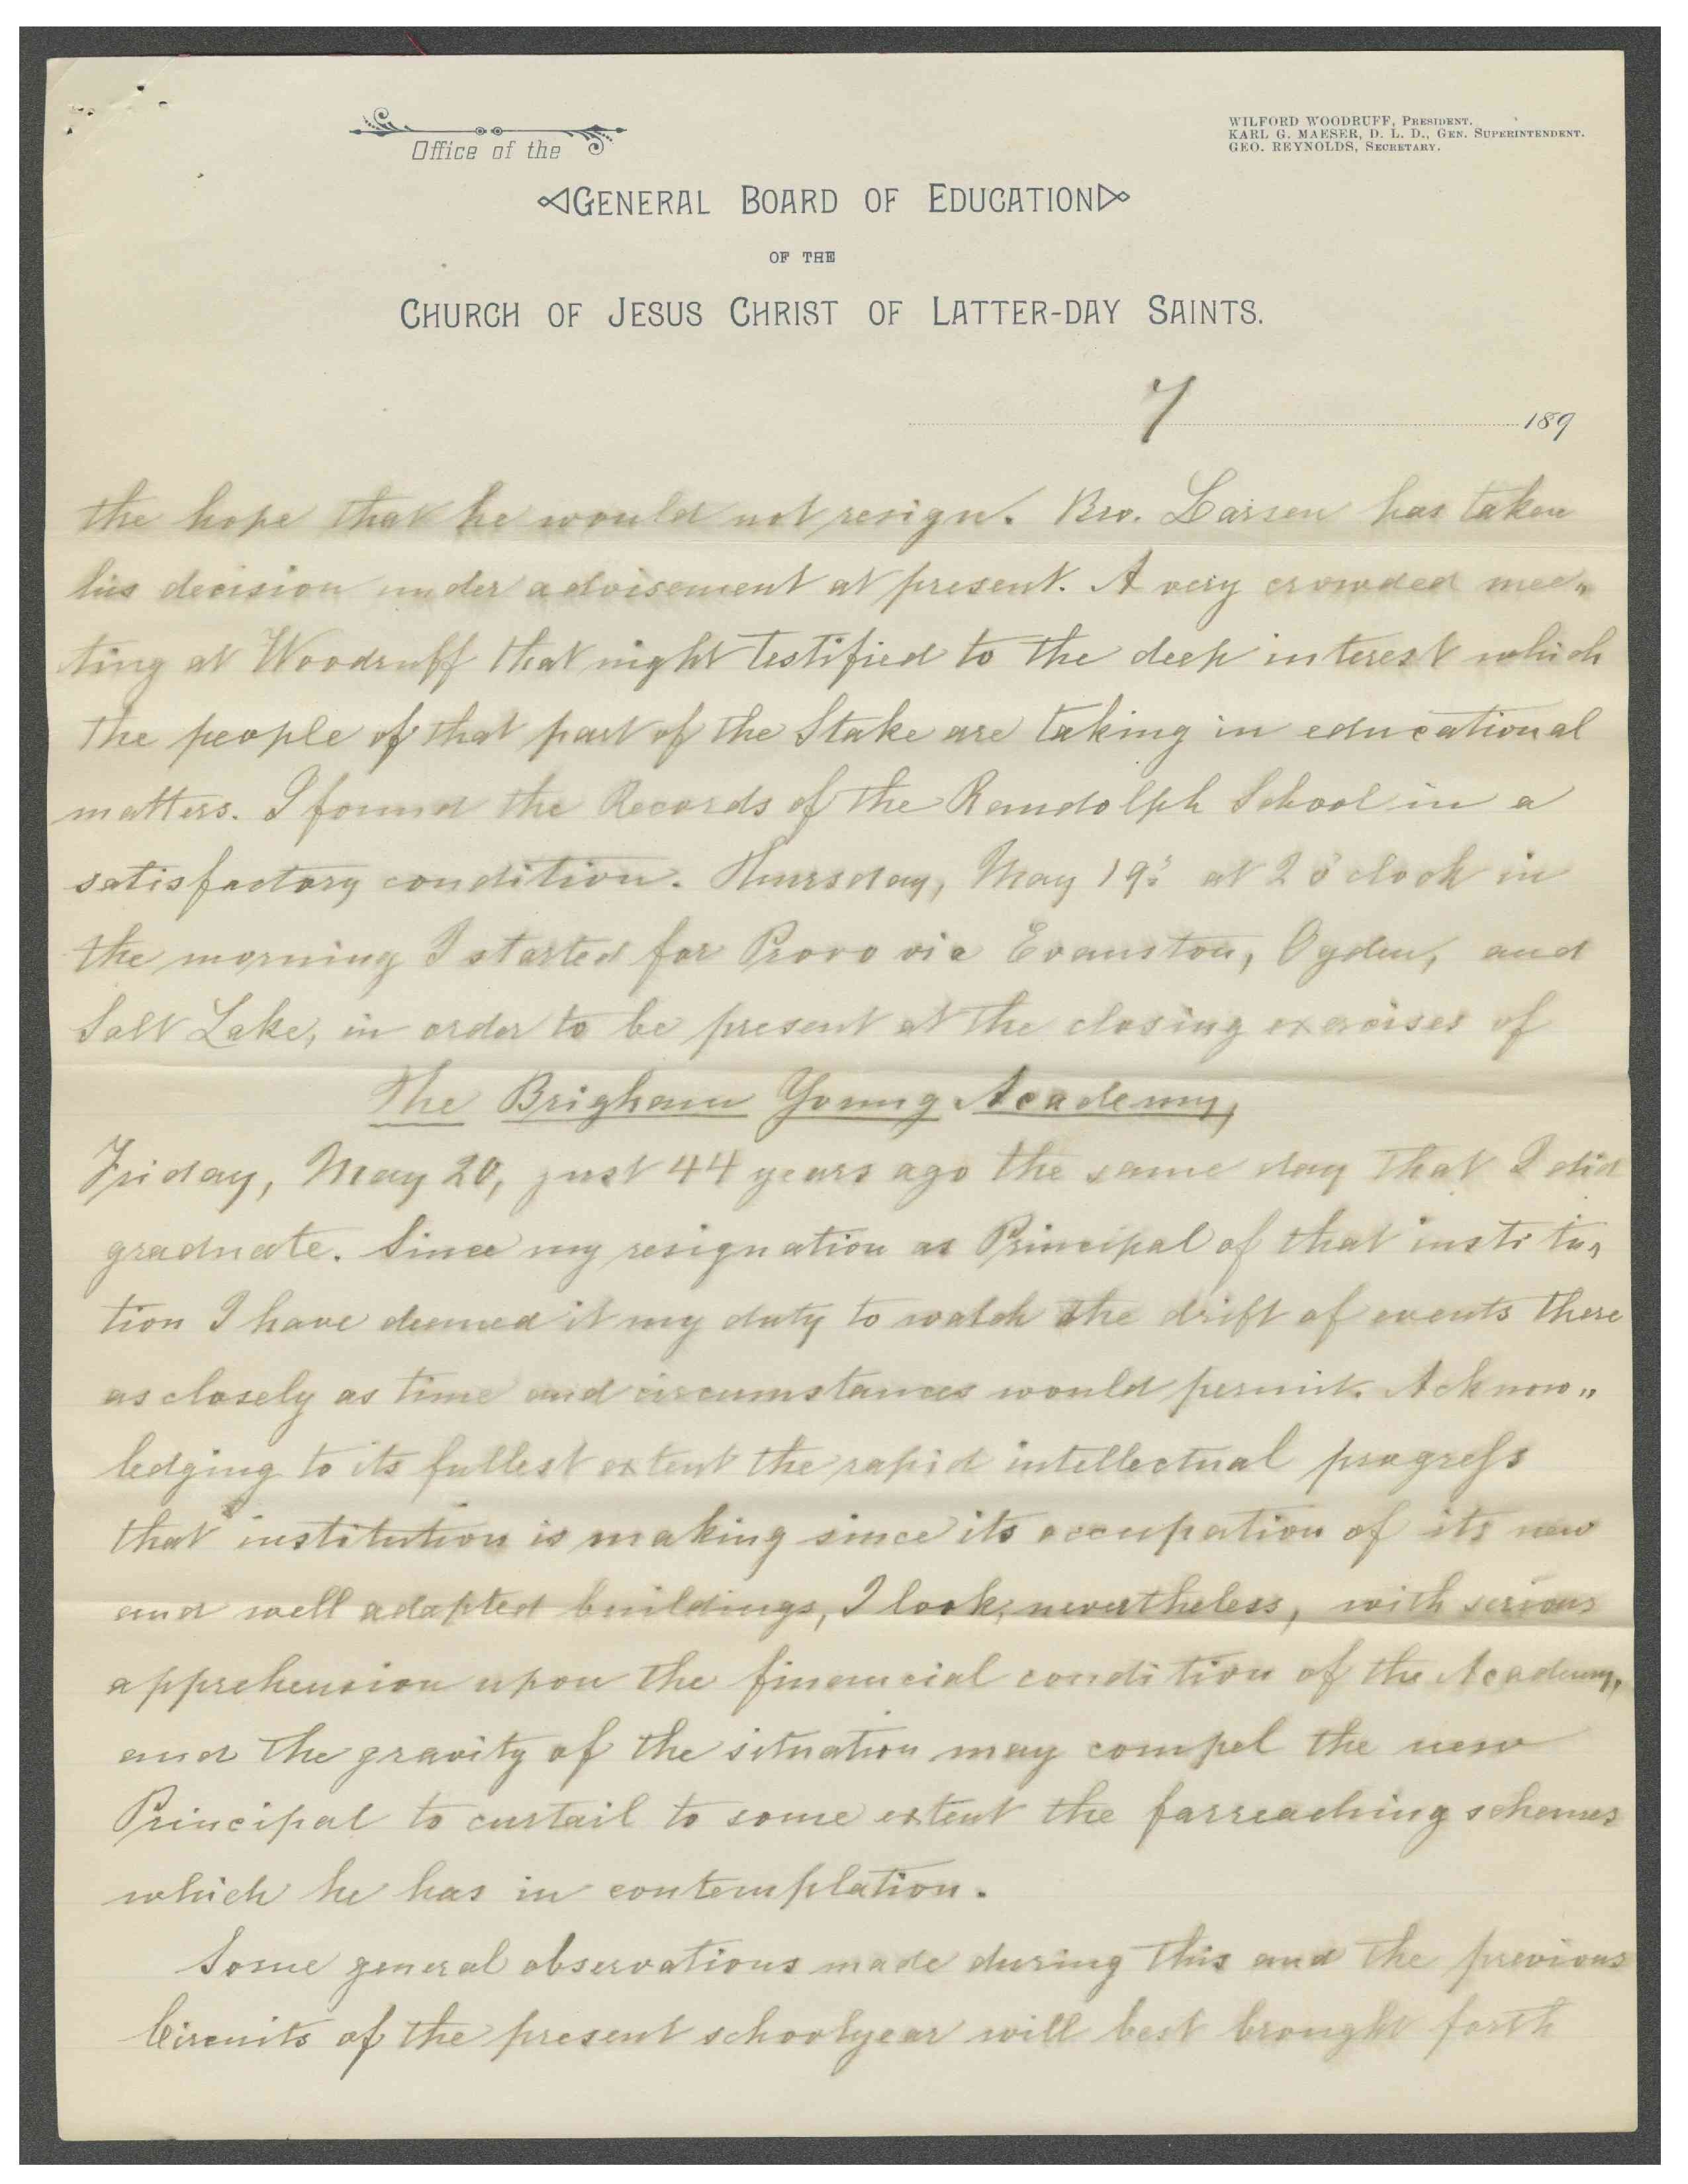 Office of the
WILFORD WOODRUFF, PRESIDENT.
KARL G. MAESER, D. L. D., GEN. SUPERINTENDENT.
GEO. REYNOLDS, SECRETARY.
GENERAL BOARD OF EDUCATION
OF THE
CHURCH OF JESUS CHRIST OF LATTER-DAY SAINTS.
7 189
the hope that he would not resign. Bro. Larsen has taken
his decision under advisement at present. A very crowded mee„
ting at Woodruff that night testified to the deep interest which
the people of that part of the Stake are taking in educational
matters. I found the Records of the Randolph School in a
satisfactory condition. Thursday, May 19, at 2 o'clock in
the morning I started for Provo via Evanston, Ogden, and
Salt Lake, in order to be present at the closing exercises of
The Brigham Young Academy,
Friday, May 20, just 44 years ago the same day that I did
graduate. Since my resignation as Principal of that institu„
tion I have deemed it my duty to watch the drift of events there
as closely as time and circumstances would permit. Acknow„
ledging to its fullest extent the rapid intellectual progress
that institution is making since its occupation of its new
and well adapted buildings, I look, nevertheless, with serious
apprehension upon the financial condition of the Academy,
and the gravity of the situation may compel the new
Principal to curtail to some extent the farreaching schemes
which he has in contemplation.
Some general observations made during this and the previous
Circuits of the present schoolyear will best brought forth